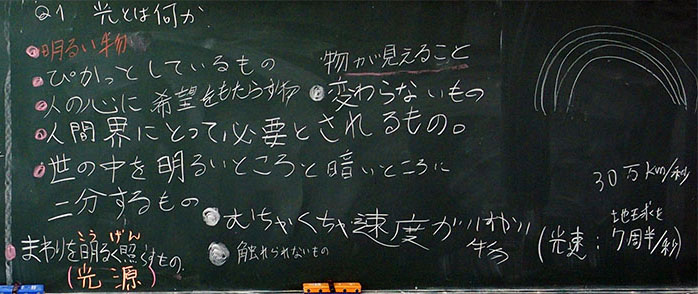 Q1 光とは何か
明るい物
ぴかっとしているもの
人の心に希望をもたらす物
人間界にとって必要とされるもの。
世の中を明るいところと暗いところに
二分するもの
こうげん
まわりを明るく照らすもの
(光源)
物が見えること
変わらないもの
むちゃくちゃ速度がはやい
物
触れられないもの
30万km/秒
地球を
(光速:7周半/秒)